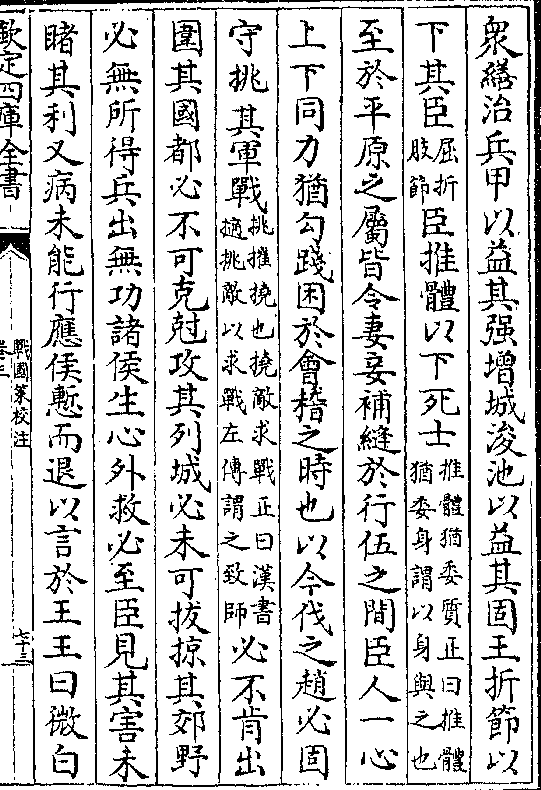 衆繕治兵甲以益其强增城浚池以益其固王折節以
下其臣屈折肢節臣推體以下死士推體猶委質正曰推體猶委身謂以身與之也
至於平原之屬皆令妻妾補縫於行伍之間臣人一心
上下同力猶勾踐困於會稽之時也以今伐之趙必固
守挑其軍戰挑摧撓也撓敵求戰正曰漢書擿挑敵以求戰左傳謂之致師必不肯出
圍其國都必不可克攻其列城必未可拔掠其郊野
必無所得兵出無功諸侯生心外救必至臣見其害未
睹其利又病未能行應侯慙而退以言於王王曰微白
欽定四庫全書
戰國策校注
卷三
七十三